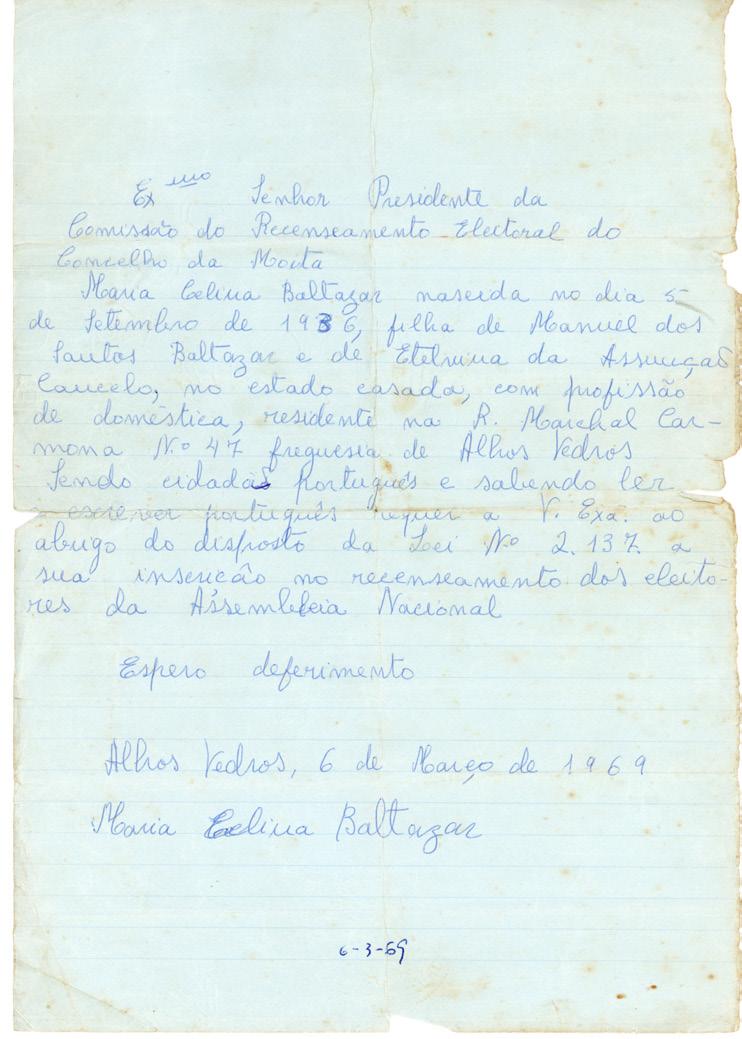 Ex^mo Senhor Presidente da
Comissão do Recenseamento Electoral do
Concelho da Moita
Maria Celina Baltazar nascida no dia 5
de Setembro de 1936, filha de Manuel dos
Santos Baltazar e de Etelvina da Assunção
Cancelo, no estado casada, com profissão
de doméstica, residente na R. Marchal Car-
mona N.º 47 freguesia de Alhos Vedros
Sendo cidadã português e sabendo ler
e escrever português requer a V. Exa. ao
abrigo do disposto da Lei N.º 2.137 a
sua inserição no recenseamento dos eleito-
res da Assembleia Nacional
Espero deferimento
Alhos Vedros, 6 de Março de 1969
Maria Celina Baltazar
6-3-69